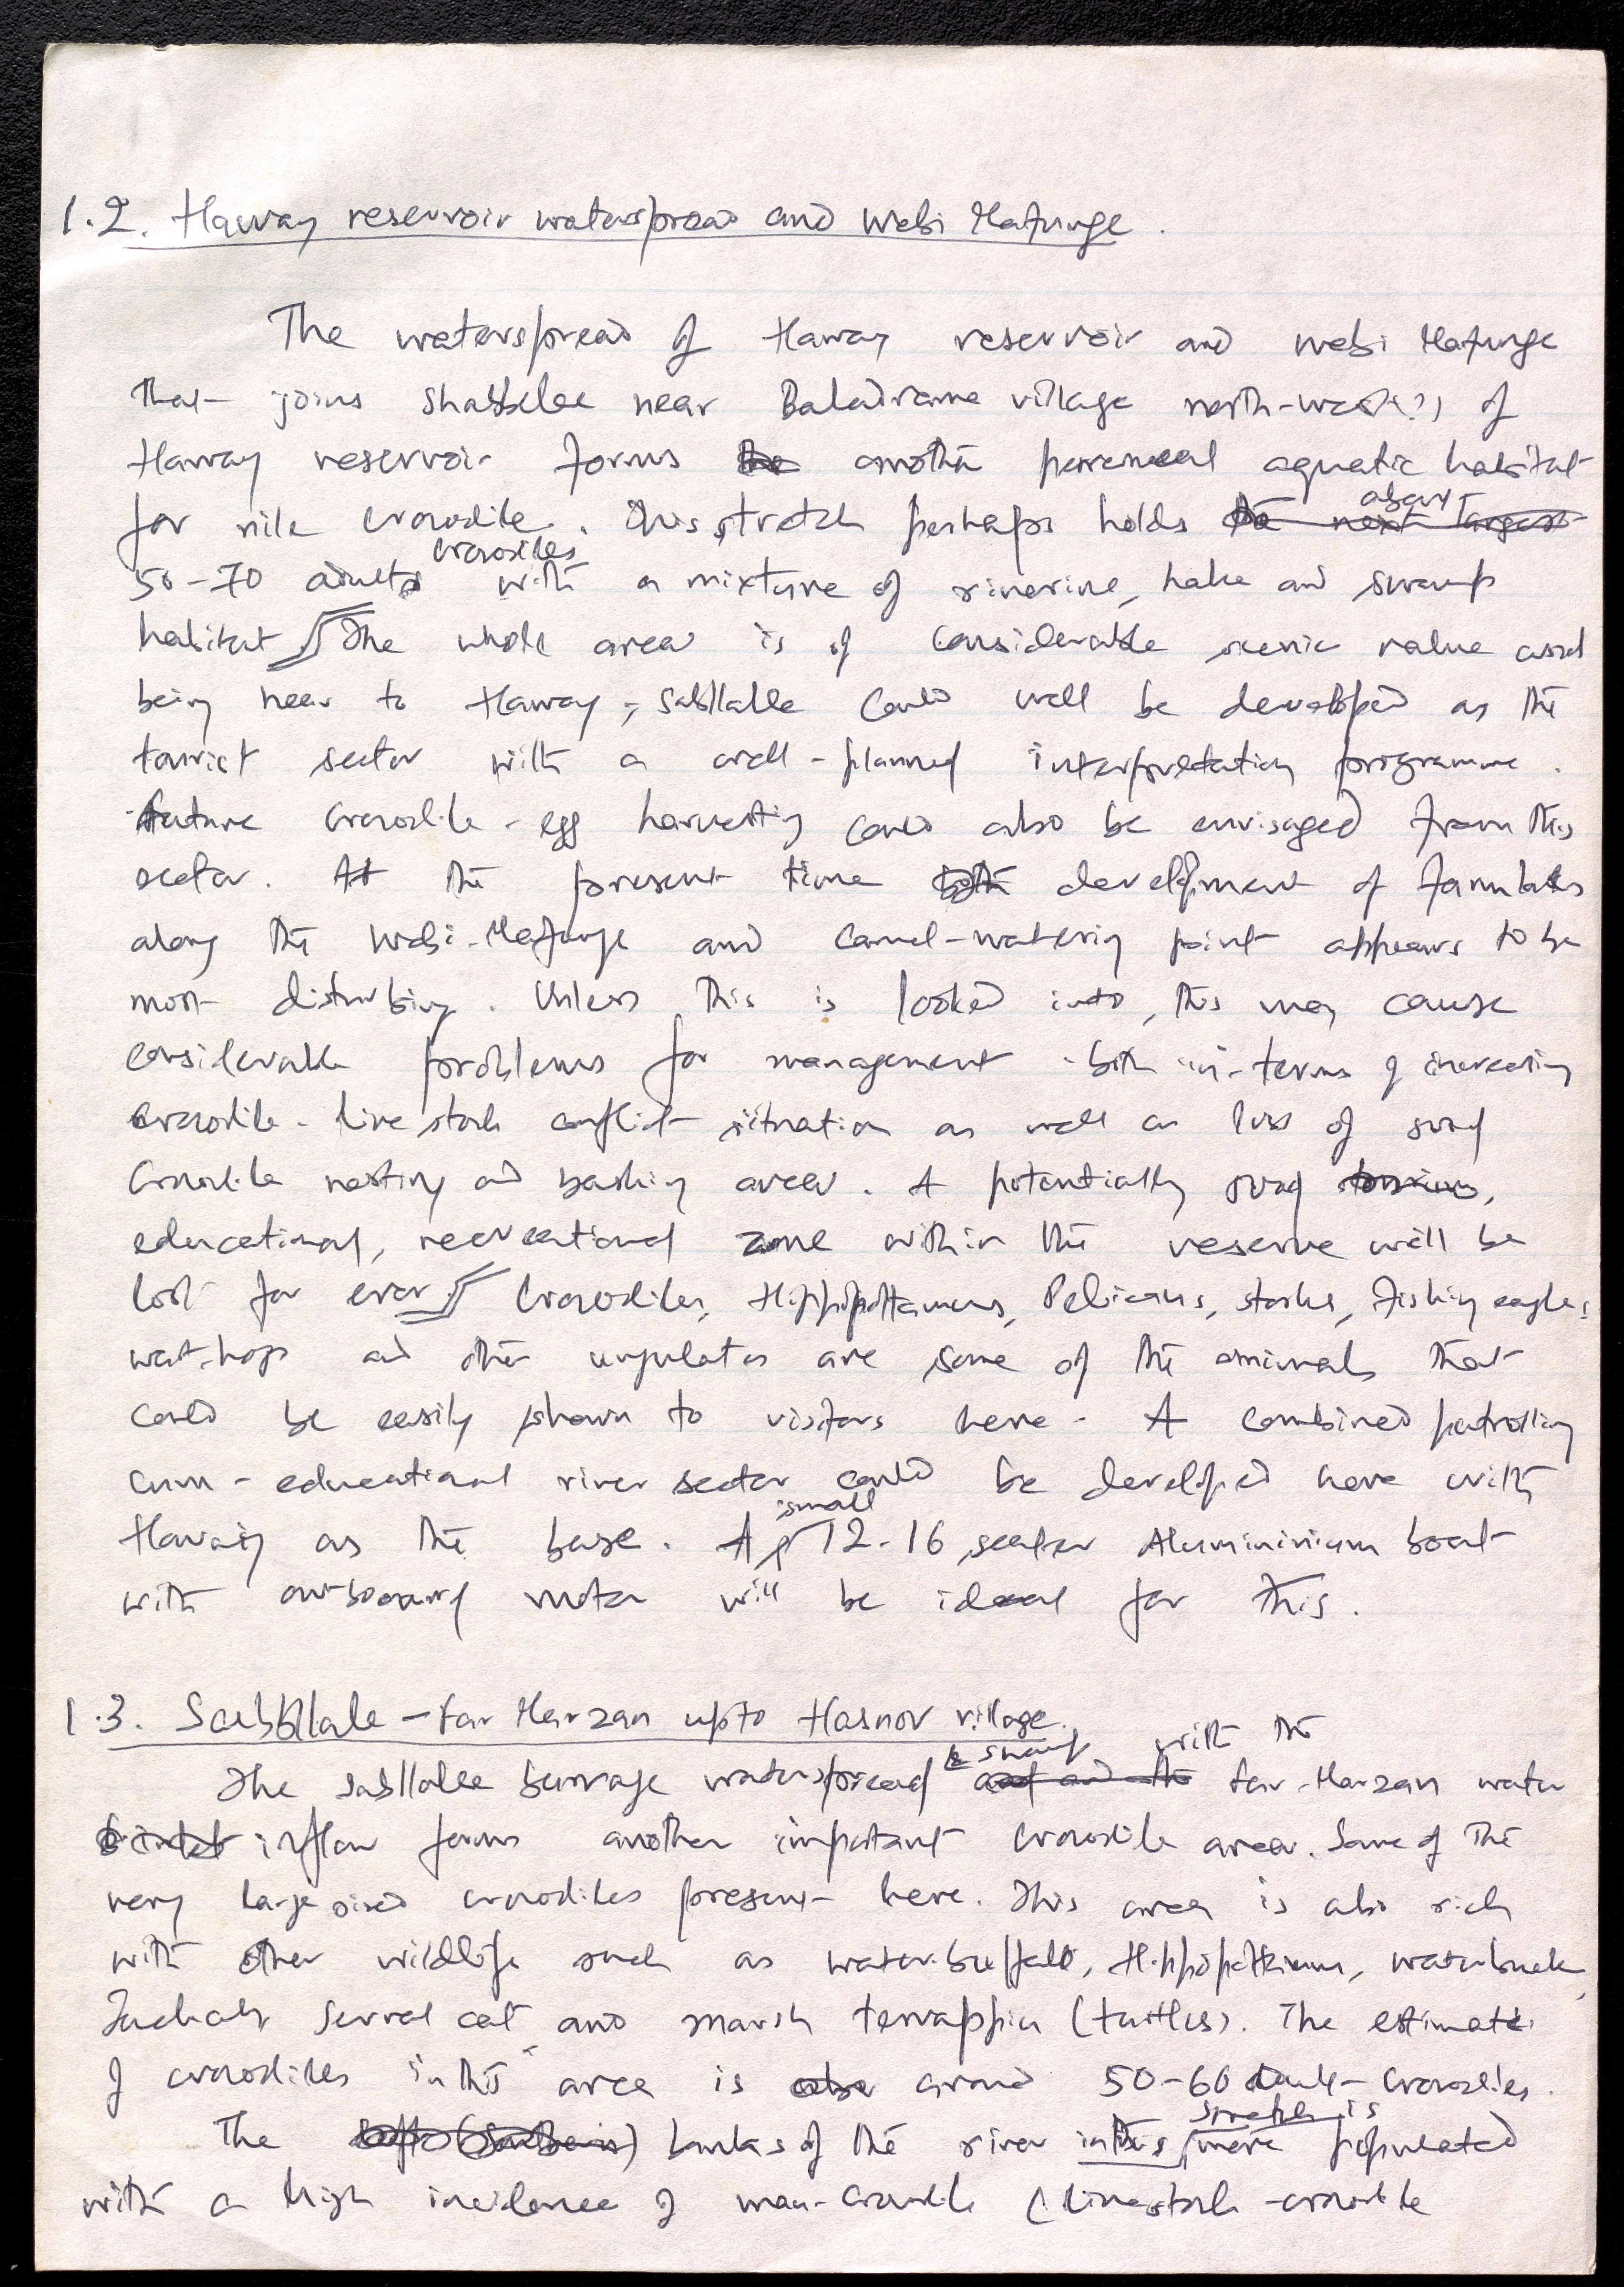 1.2. Haway reservoir waterspread and Webi Mafunge.
The waterspread of Haway reservoir and Webi Mafunge
that joins Shabbelee near Baladrame village north-west(?) of
Haway reservoir forms the another perenneal aquatic habitat
for nile crocodile. This stretch perhaps holds the next largest about
50-70 adults crocodiles with a mixture of riverine, lake and swamp
habitat. The whole area is of considerable scenic value and
being near to Haway, Sabllalle could well be developed as the
tourist sector with a well-planned interpretation programme.
Future crocodile-egg harvesting could also be envisaged from this
sector. At the present time both development of farmlands
along the Webi-Mafunge and camel-watering point appears to be
most disturbing. Unless this is looked into, this may cause
considerable problems for management both in-terms of increasing
crocodile-livestock conflict situation as well as loss of good
crocodile nesting and basking areas. A potentially good tourism,
educational, recreational zone within the reserve will be
lost for ever. Crocodiles, Hippopottamus, Pelicans, storks, Fishing eagles,
wart-hogs and other ungulates are some of the animals that
could be easily shown to visitors here. A combined patrolling
cum-educational river sector could be developed here with
Haway as the base. A small 12-16 seater Aluminimium boat
with outboard motor will be ideal for this.
1.3. Sabbllale - far Marzan upto Hasnov village.
The Sabllalle barrage waterspread & swamp and the with the far-Marzan water
inlet inflow forms another important crocodile area. Some of the
very large sized crocodiles present here. This area is also rich
with other wildlife such as water-buffalo, Hippopottamus, waterbuck,
Jackals, Serval cat and marsh terrappin (turtles). The estimate
of crocodiles in this area is also around 50-60 adult-crocodiles.
The banks of the river in this stretch is more populated
with a high incidence of man-crocodile (livestock-crocodile